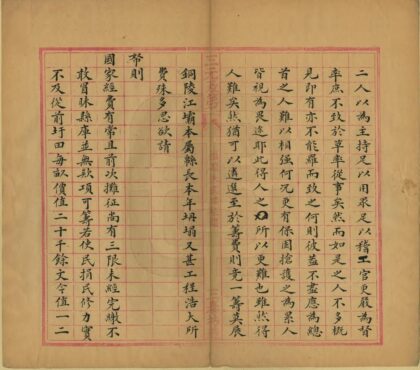 二人以為主持足以用眾足以稽工官更嚴為督
率庶不致於草率從事矣然而如是之人不多概
見即有亦不能羅而致之何則彼蓋不盡應為總
首之人難以相強何況更有保固搶護之為累人
皆視為畏途耶此得人之所以更難也雖然得
人難矣然猶可以遴選至於籌費則竟一籌莫展
銅陵江壩本屬縣長本年坍塌又甚工程浩大所
費殊多思欲請
帑則
國家經費有常且前次攤征尚有三限未經完繳不
敢冒昧縣庫並無款項可籌若使民捐民修力實
不及從前圩田每畝價值二十千餘文今值一二